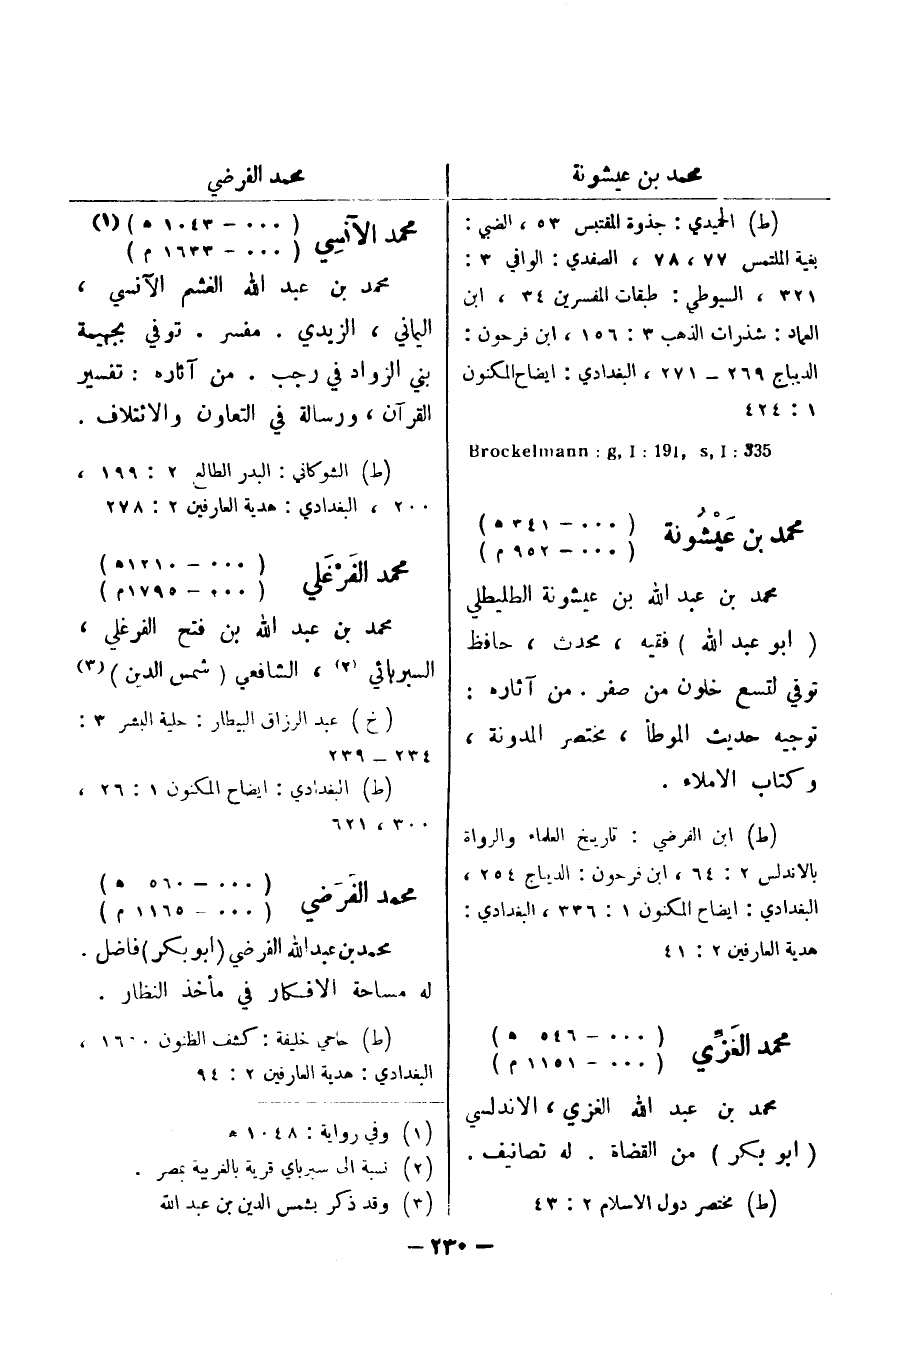 محمد بن عيشونة
(ط) الحميدي : جذوة المقتبس ٥٣ ، الضبي :
بغية الملتمس ٧٧ ، ٧٨ ، الصفدي : الوافي ٣ :
٣٢١ ، السيوطي : طبقات المفسرين ٣٤ ، ابن
العماد : شذرات الذهب ٣ : ١٥٦ ، ابن فرحون :
الديباج ٢٦٩ – ٢٧١ ، البغدادي : ايضاح المكنون
١ : ٤٢٤
Brockelmann : g, I : 191, s, I : 335
محمد بن عَيْشُونة ( ٠٠٠ – ٣٤١ ه )
( ٠٠٠ – ٩٥٢ م )
محمد بن عبد الله بن عيشونة الطليطلي
( ابو عبد الله ) فقيه ، محدث ، حافظ
توفي لتسع خلون من صفر . من آثاره :
توجيه حديث الموطأ ، مختصر المدونة ،
وكتاب الاملاء .
(ط) ابن الفرضي : تاريخ العلماء والرواة
بالاندلس ٢ : ٦٤ ، ابن فرحون : الديباج ٢٥٤ ،
البغدادي : ايضاح المكنون ١ : ٣٣٦ ، البغدادي :
هدية العارفين ٢ : ٤١
محمد الغَزِّي ( ٠٠٠ – ٥٤٦ ه )
( ٠٠٠ – ١١٥١ م )
محمد بن عبد الله الغزي ، الاندلسي
( ابو بكر ) من القضاة . له تصانيف .
(ط) مختصر دول الاسلام ٢ : ٤٣
محمد الفرضي
محمد الآنسِي ( ٠٠٠ – ١٠٤٣ ه ) (١)
( ٠٠٠ – ١٦٣٣ م )
محمد بن عبد الله الغشم الآنسي ،
اليماني ، الزيدي . مفسر . توفي بجهيمة
بني الزواد في رجب . من آثاره : تفسير
القرآن ، ورسالة في التعاون والائتلاف .
(ط) الشوكاني : البدر الطالع ٢ : ١٩٩ ،
٢٠٠ ، البغدادي : هدية العارفين ٢ : ٢٧٨
محمد الفَرْغَلي ( ٠٠٠ – ١٢١٠ه )
( ٠٠٠ – ١٧٩٥م )
محمد بن عبد الله بن فتح الفرغلي ،
السبربائي (٢) ، الشافعي ( شمس الدين ) (٣)
( خ ) عبد الرزاق البيطار : حلية البشر ٣ :
٢٣٤ – ٢٣٩
(ط) البغدادي : ايضاح المكنون ١ : ٢٦ ،
٣٠٠ ، ٦٢١
محمد الفَرَضي ( ٠٠٠ – ٥٦٠ ه )
( ٠٠٠ – ١١٦٥ م )
محمد بن عبد الله الفرضي (ابو بكر) فاضل .
له مساحة الافكار في مأخذ النظار .
(ط) حاجي خليفة : كشف الظنون ١٦٠٠ ،
البغدادي : هدية العارفين ٢ : ٩٤
(١) وفي رواية : ١٠٤٨ ه
(٢) نسبة الى سبرباي قرية بالغربية بمصر .
(٣) وقد ذكر بشمس الدين بن عبد الله
– ٢٣٠ –